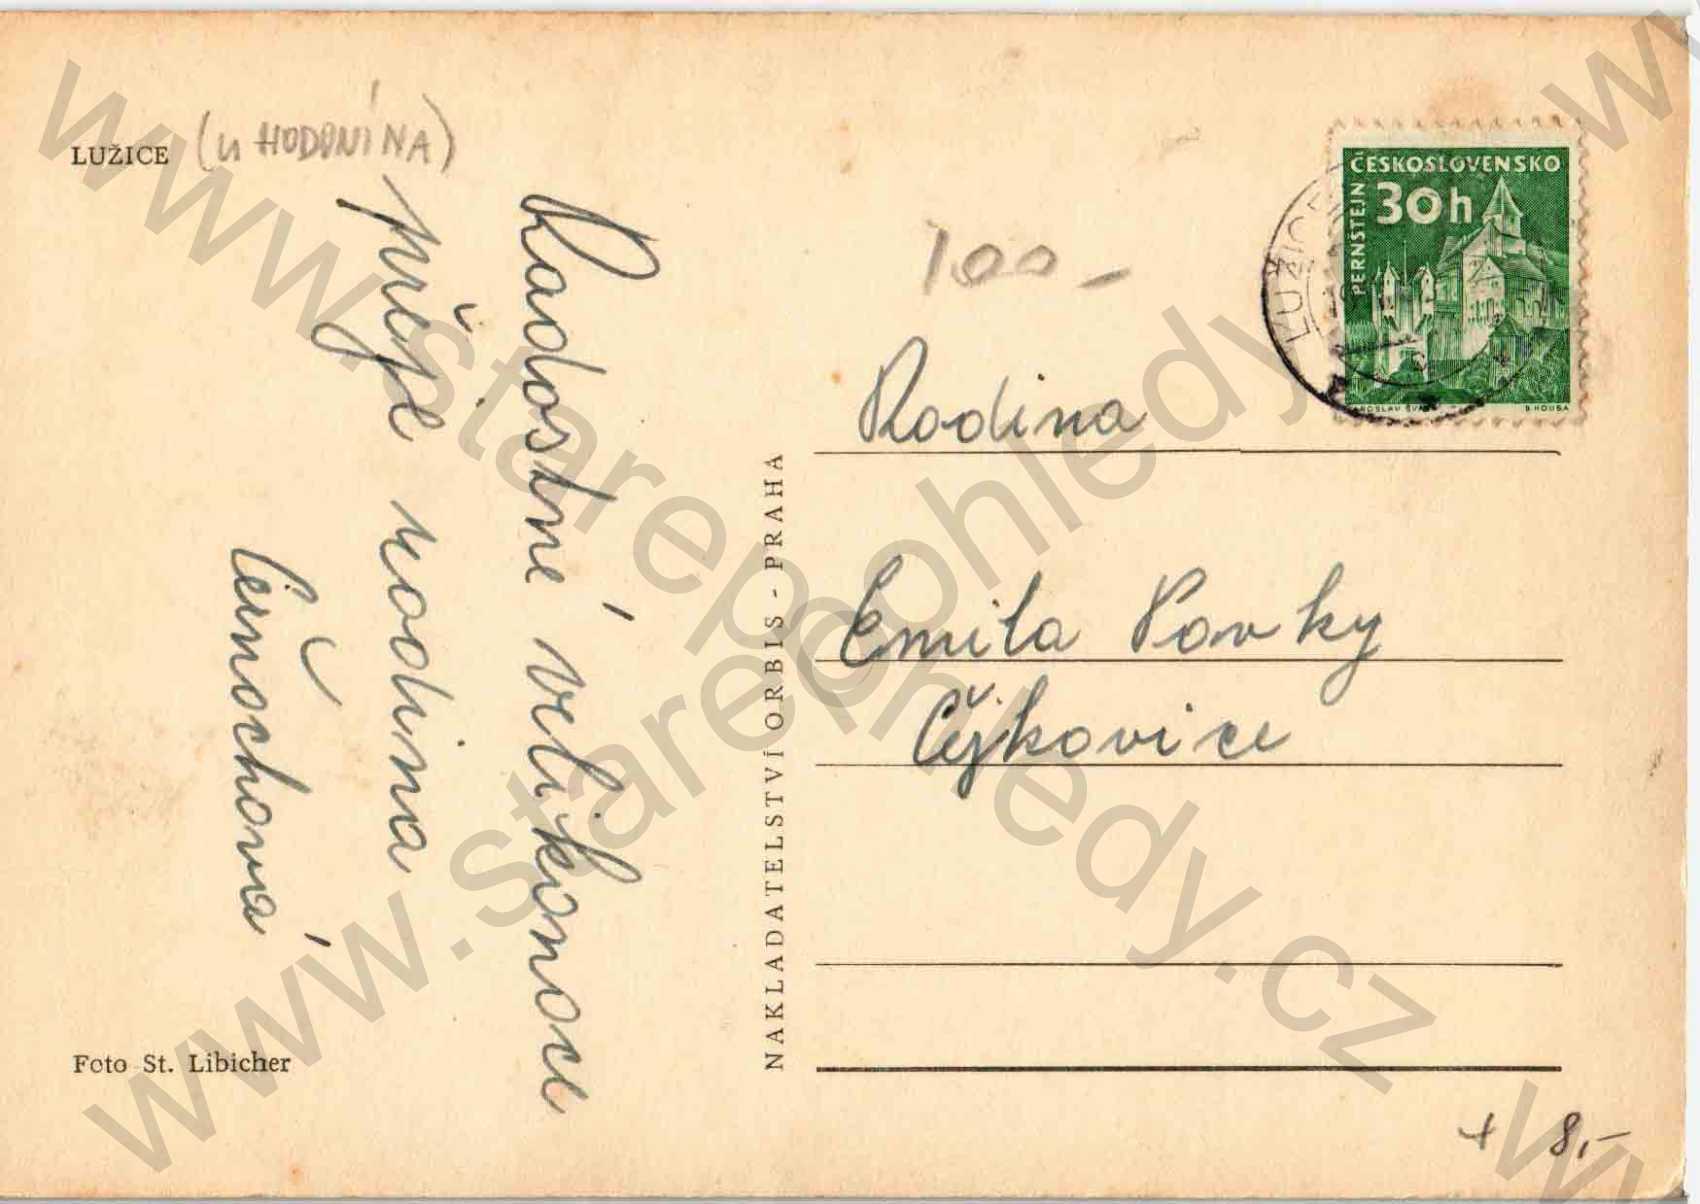 LUŽICE (u HODONÍNA)
Radostné velikonoce
přeje rodina
Černochová
Foto St. Libicher
NAKLADATELSTVÍ ORBIS - PRAHA
100-
ČESKOSLOVENSKO
30h
PERNŠTEJN
JAROSLAV ŠVAB
B HOUSA
LUŽICE
Rodina
Emila Pavky
Čejkovice
+ 8,-
www.starepohledy.cz
www.starepohledy.cz